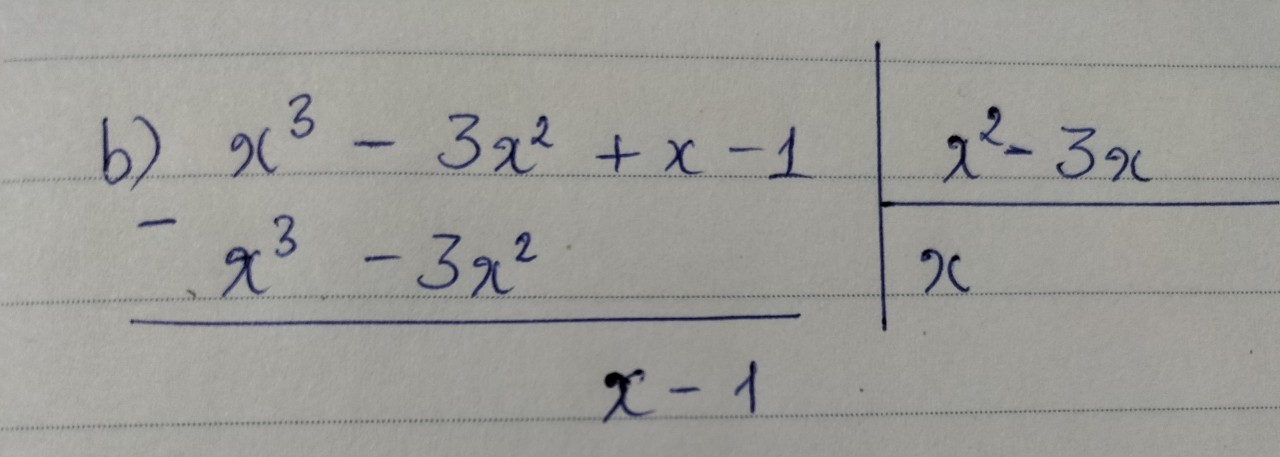 b) x³ - 3x² + x - 1 | x² - 3x
- x³ - 3x² | x
x - 1